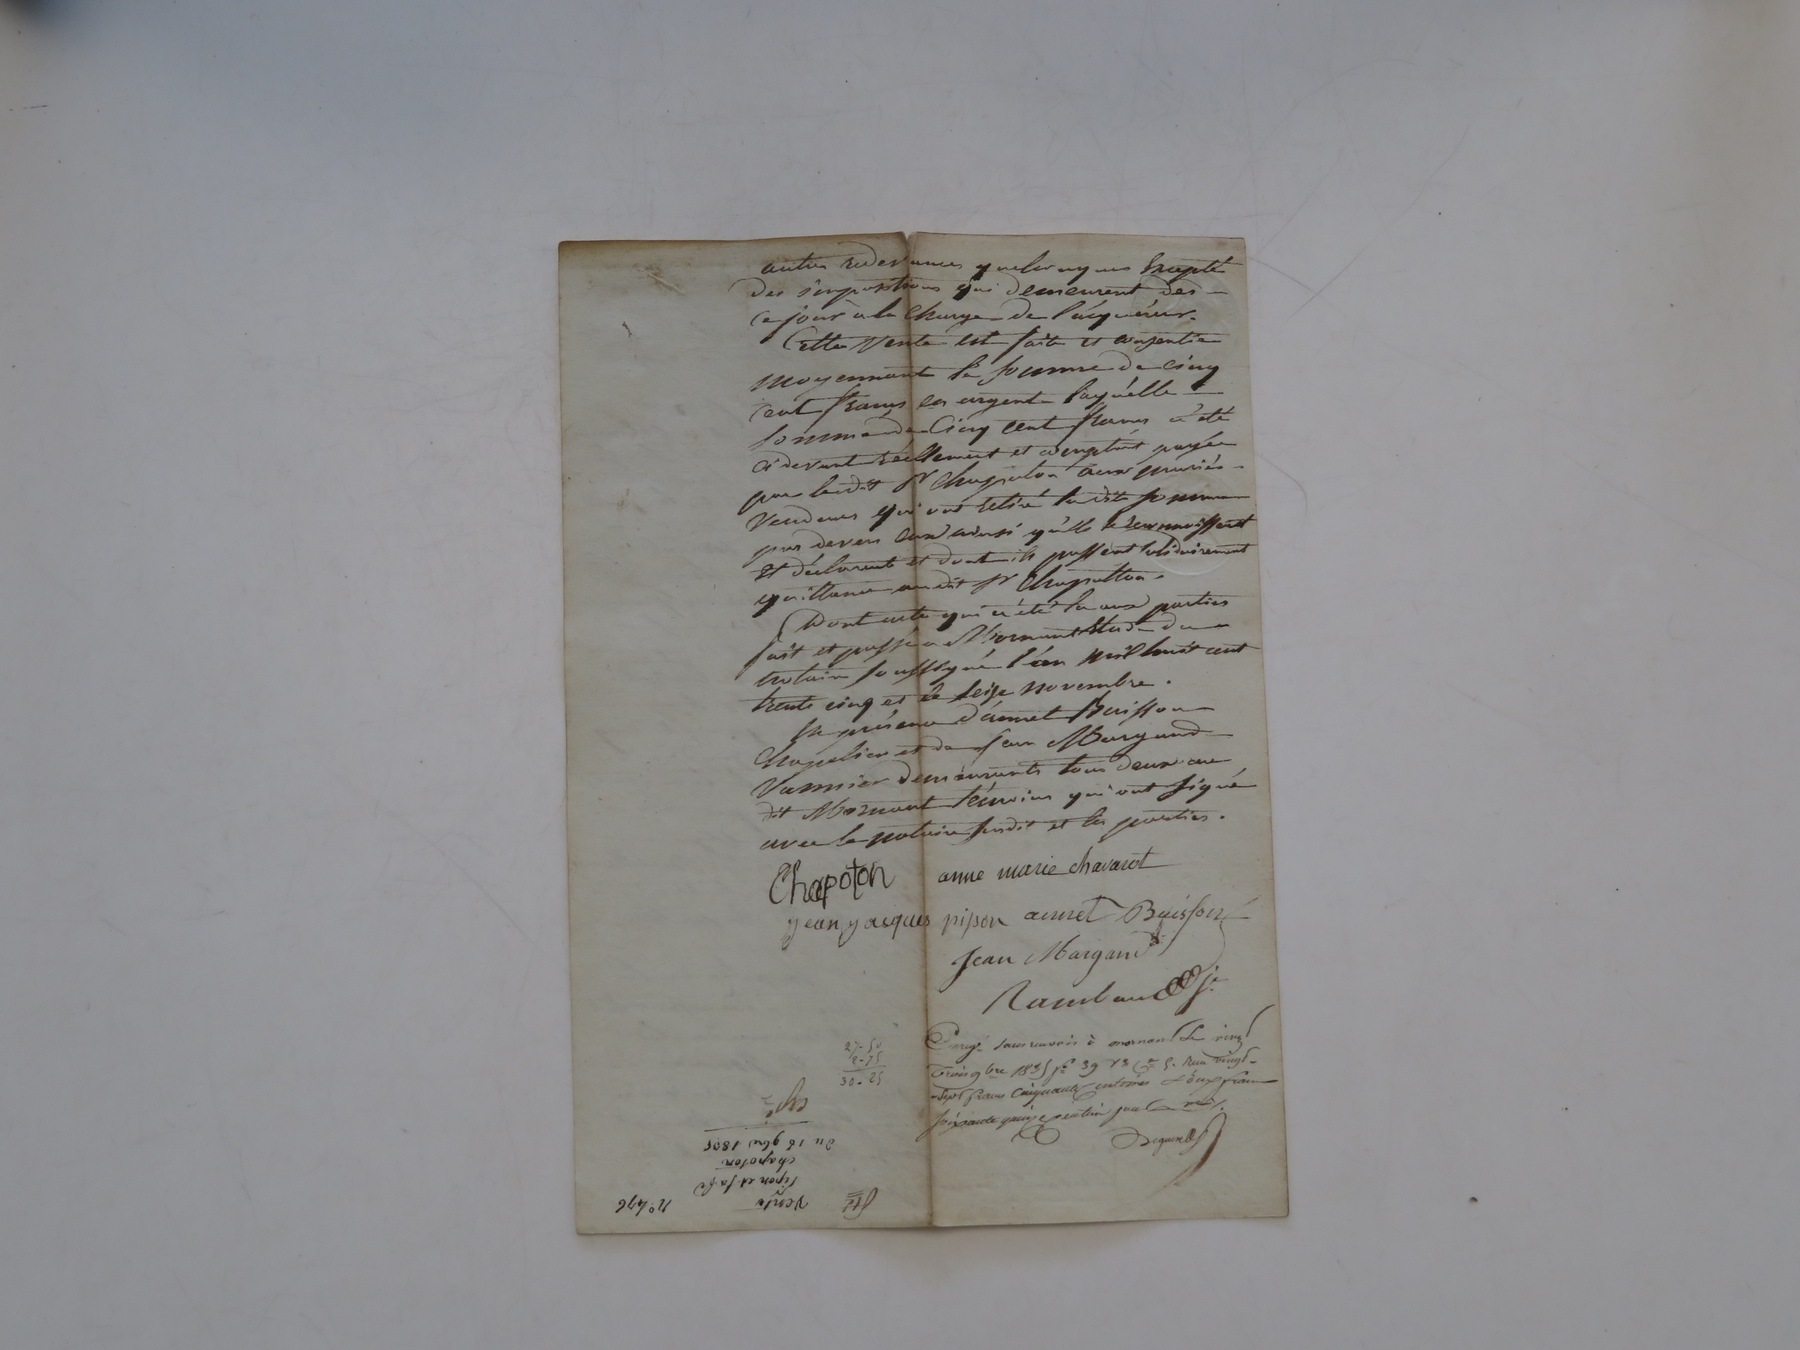 autres redevances quelconques Excepté
des impositions qui demeurent des
ce jour à la charge de l'acquéreur.
Cette vente est faite et consentie
moyennant la somme de cinq
cent francs en argent laquelle
somme de Cinq cent francs a été
ci devant réellement et comptant payée
par ledit Sr Chapoton aux mariés
vendeurs qui ont retiré la dite somme
par devers eux ainsi qu'ils le reconnoissent
et déclarent et dont ils passent solidairement
quittance audit Sr Chapotton.
Dont acte qui a été lu aux parties
fait et passé a Mornant Etude du
notaire soussigné l'an mil huit cent
trente cinq et le seize novembre.
En présence d'annet Buisson
Chapelier et de Jean Margand
Vannier demeurants tous deux au
dit Mornant témoins qui ont signé
avec le notaire susdit et les parties.
Chapoton anne marie chavarot
jean jacques pipon annet Buisson
Jean Margand
Rambaud
Enregé sans renvois à mornant le vingt
trois 9bre 1835 fo 39 Vo Ce 5. Reçu vingt
sept francs Cinquante centimes et deux francs
soixante quinze centimes pour le
27-50
2-75
30-25
Expé
du 16 9bre 1835
chapoton
pipon et sa fe
Vente
No 476